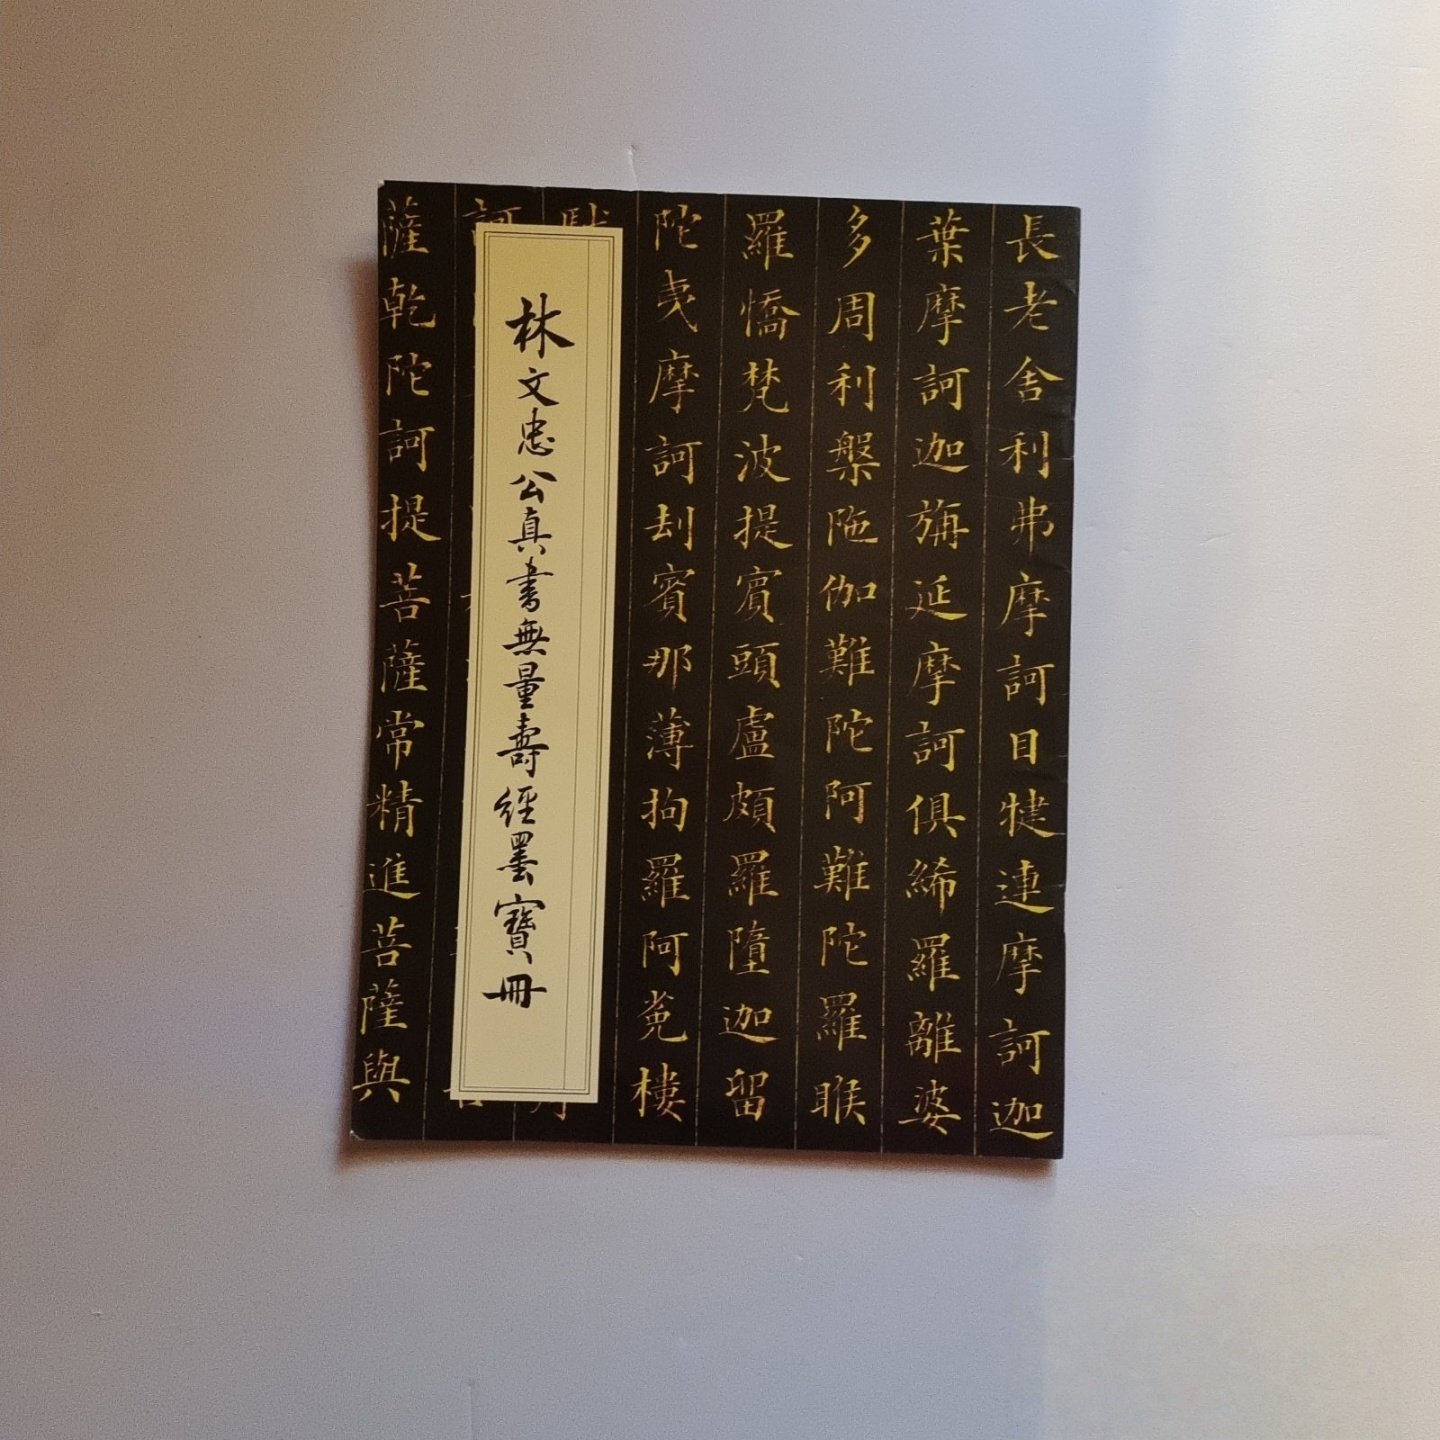 長老舍利弗摩訶目犍連摩訶迦
葉摩訶迦旃延摩訶俱絺羅離婆
多周利槃陁伽難陀阿難陀羅睺
羅憍梵波提賓頭盧頗羅墮迦留
陀夷摩訶劫賓那薄拘羅阿㝹樓
林文忠公真書無量壽經墨寶冊
訶
薩乾陀訶提菩薩常精進菩薩與